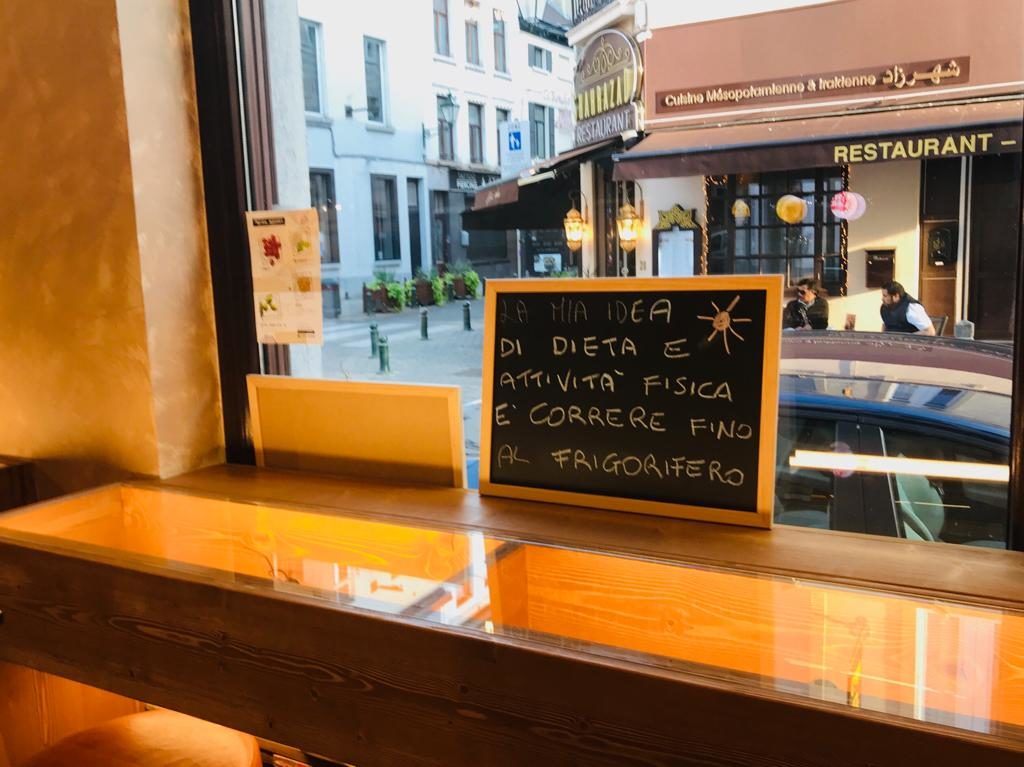 Cuisine Mésopotamienne & Irakienne شهرزاد
RESTAURANT
RESTAURANT –
LA MIA IDEA
DI DIETA E
ATTIVITA' FISICA
E' CORRERE FINO
AL FRIGORIFERO